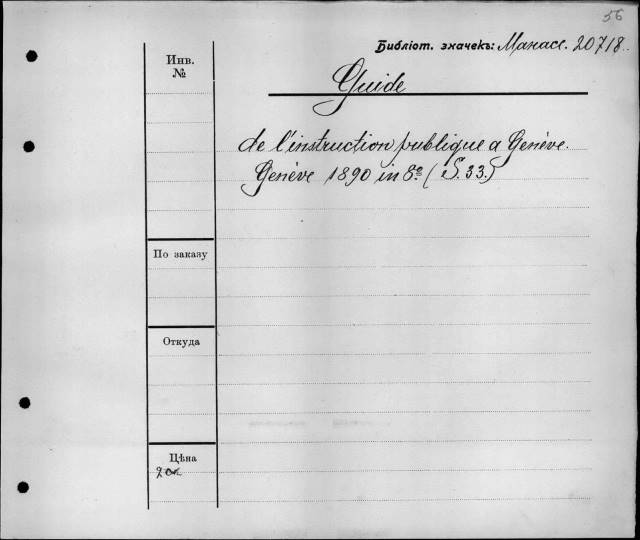 56
Библіот. значекъ: Манасс. 20718.
Инв.
№
Guide
de l'instruction publique a Genève.
Genève 1890 in 8º (S. 33.)
По заказу
Откуда
Цѣна